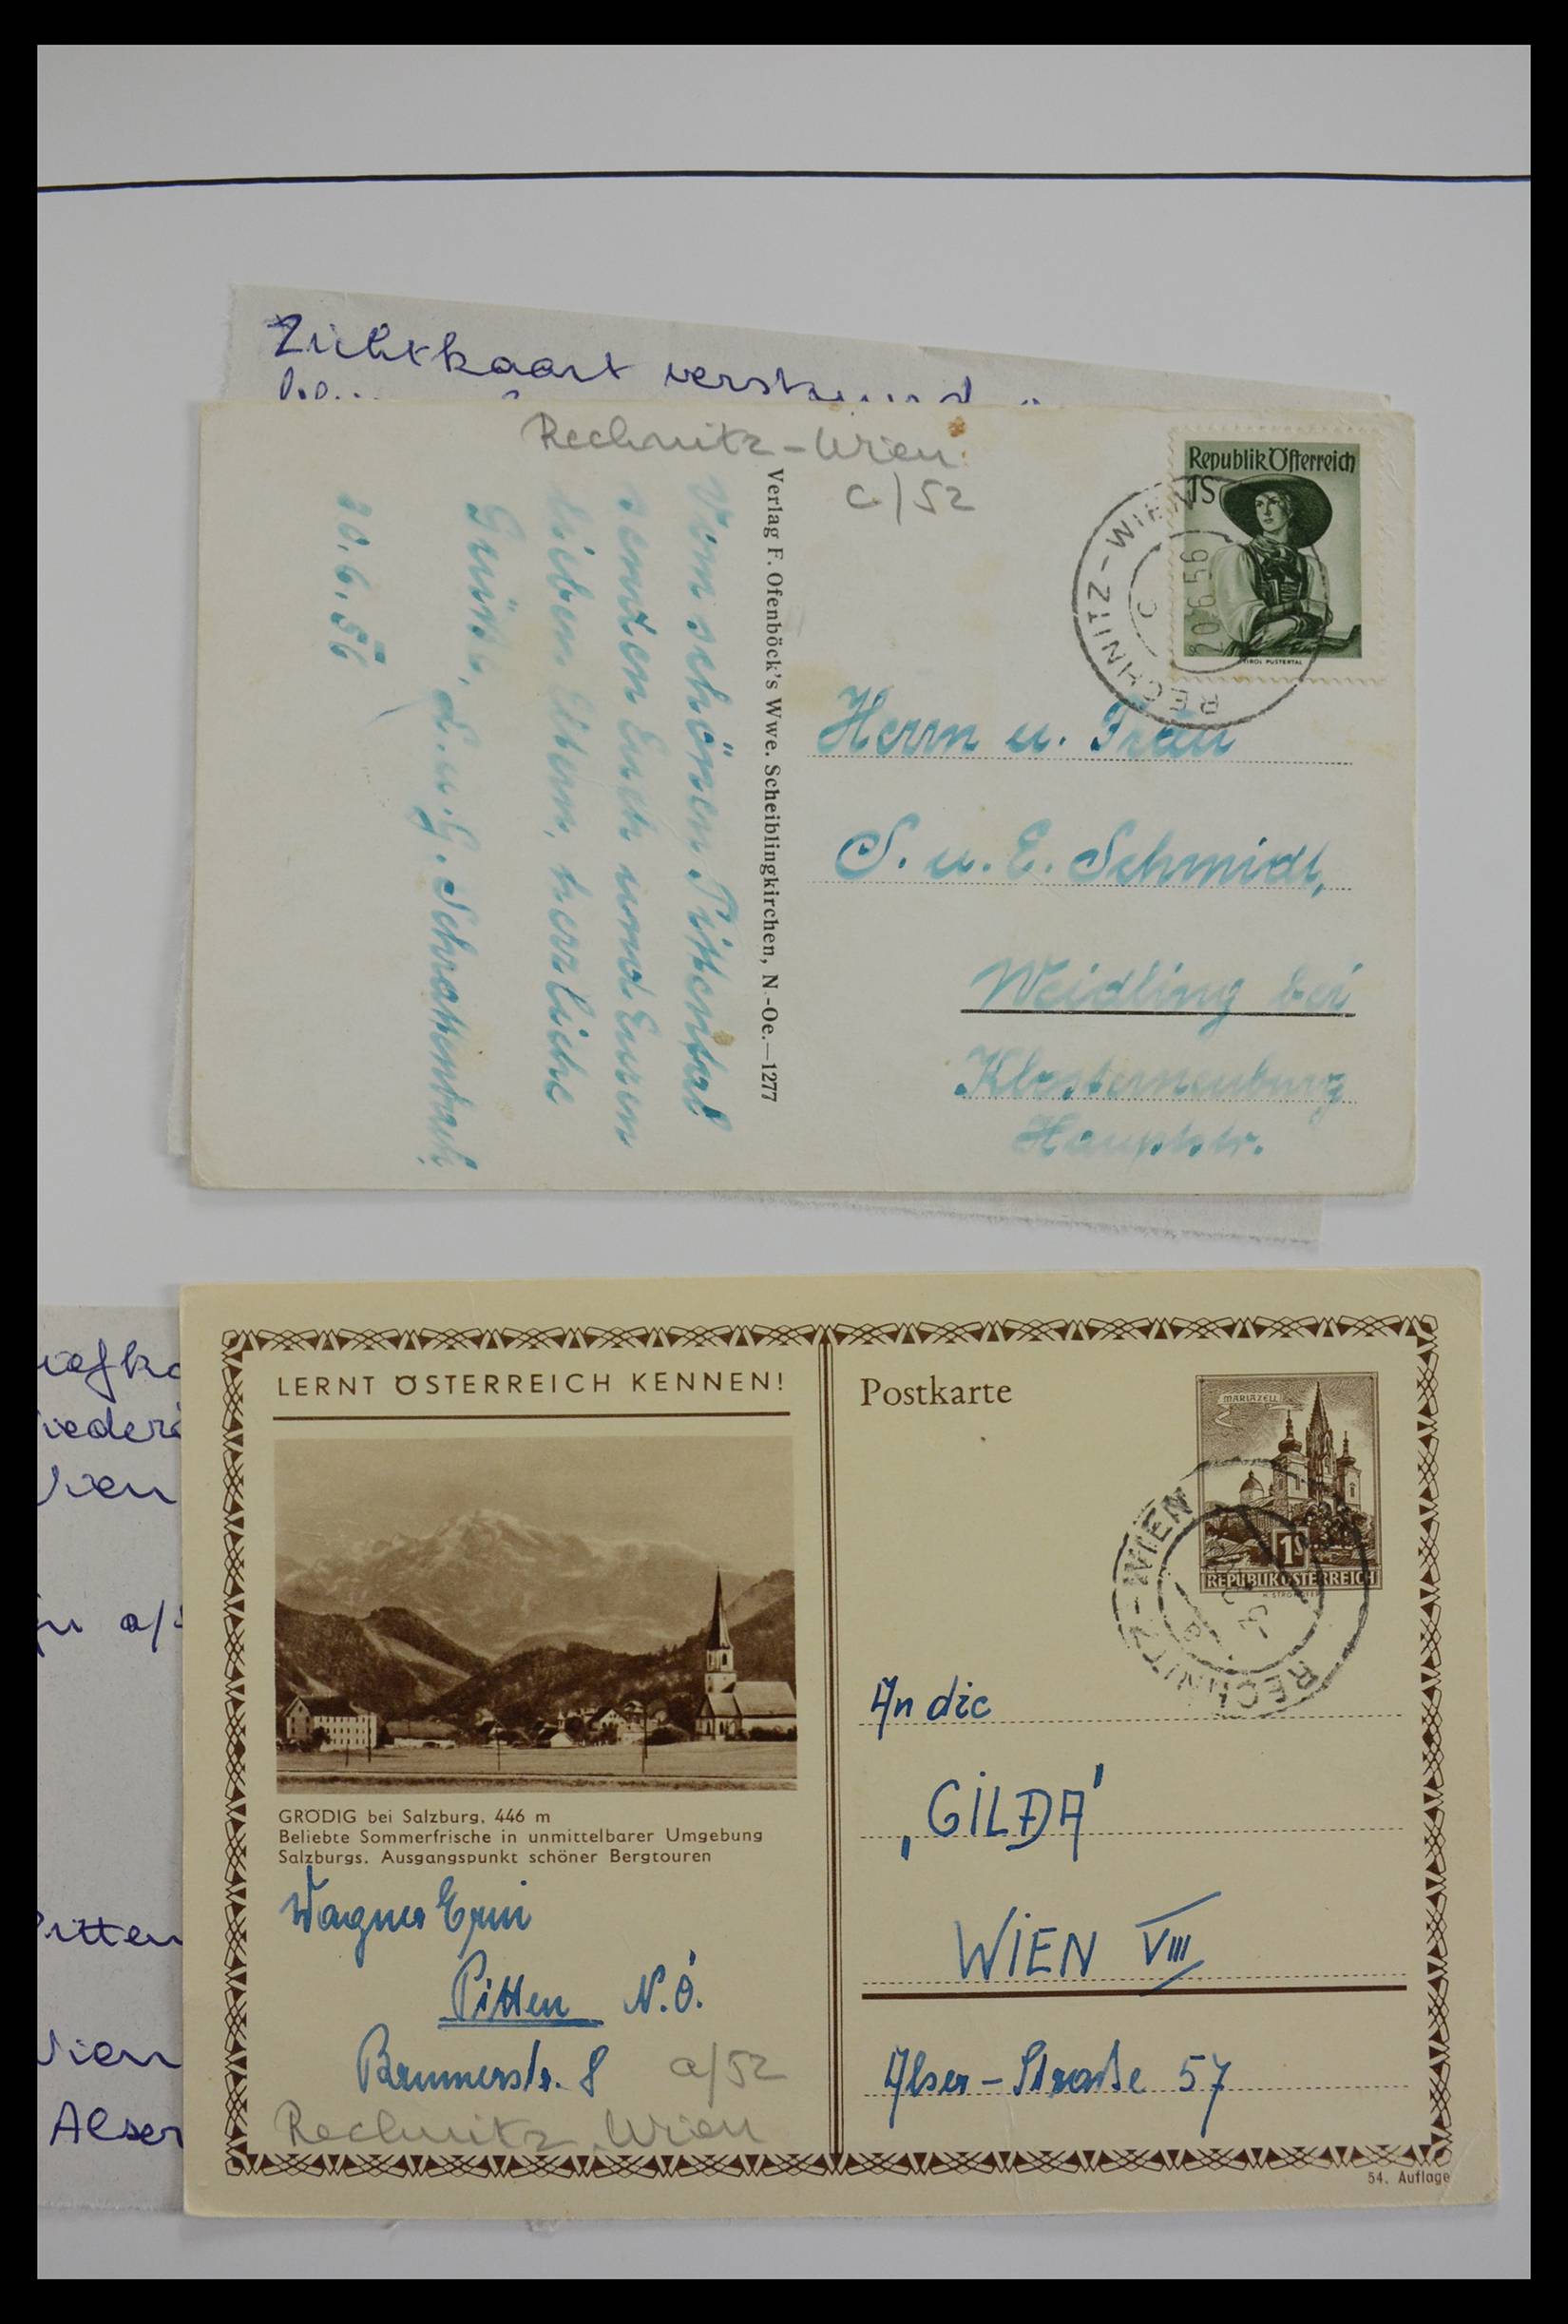 Zichtkaart
Rechnitz-Wien
C/52
Republik Österreich
1S
TIROL PUSTERTAL
RECHNITZ-WIEN
20.6.56
C
Vom schönen Pittental
senden Euch und Euren
lieben Eltern, herzliche
Grüße,
20.6.56
Verlag F. Ofenböck's Wwe. Scheiblingkirchen, N.-Oe.—1277
Herrn u. Frau
S. u. E. Schmidl,
Weidling bei
Klosterneuburg
Hauptstr.
Wien
a/
Pitten
Wien
Alser
LERNT ÖSTERREICH KENNEN!
GRÖDIG bei Salzburg, 446 m
Beliebte Sommerfrische in unmittelbarer Umgebung
Salzburgs. Ausgangspunkt schöner Bergtouren
Wagner
Pitten N.Ö.
8
a/52
Rechnitz-Wien
Postkarte
MARIAZELL
1S
REPUBLIK ÖSTERREICH
RECHNITZ-WIEN
An die
„GILDA"
WIEN VIII
Alser-Straße 57
54. Auflage